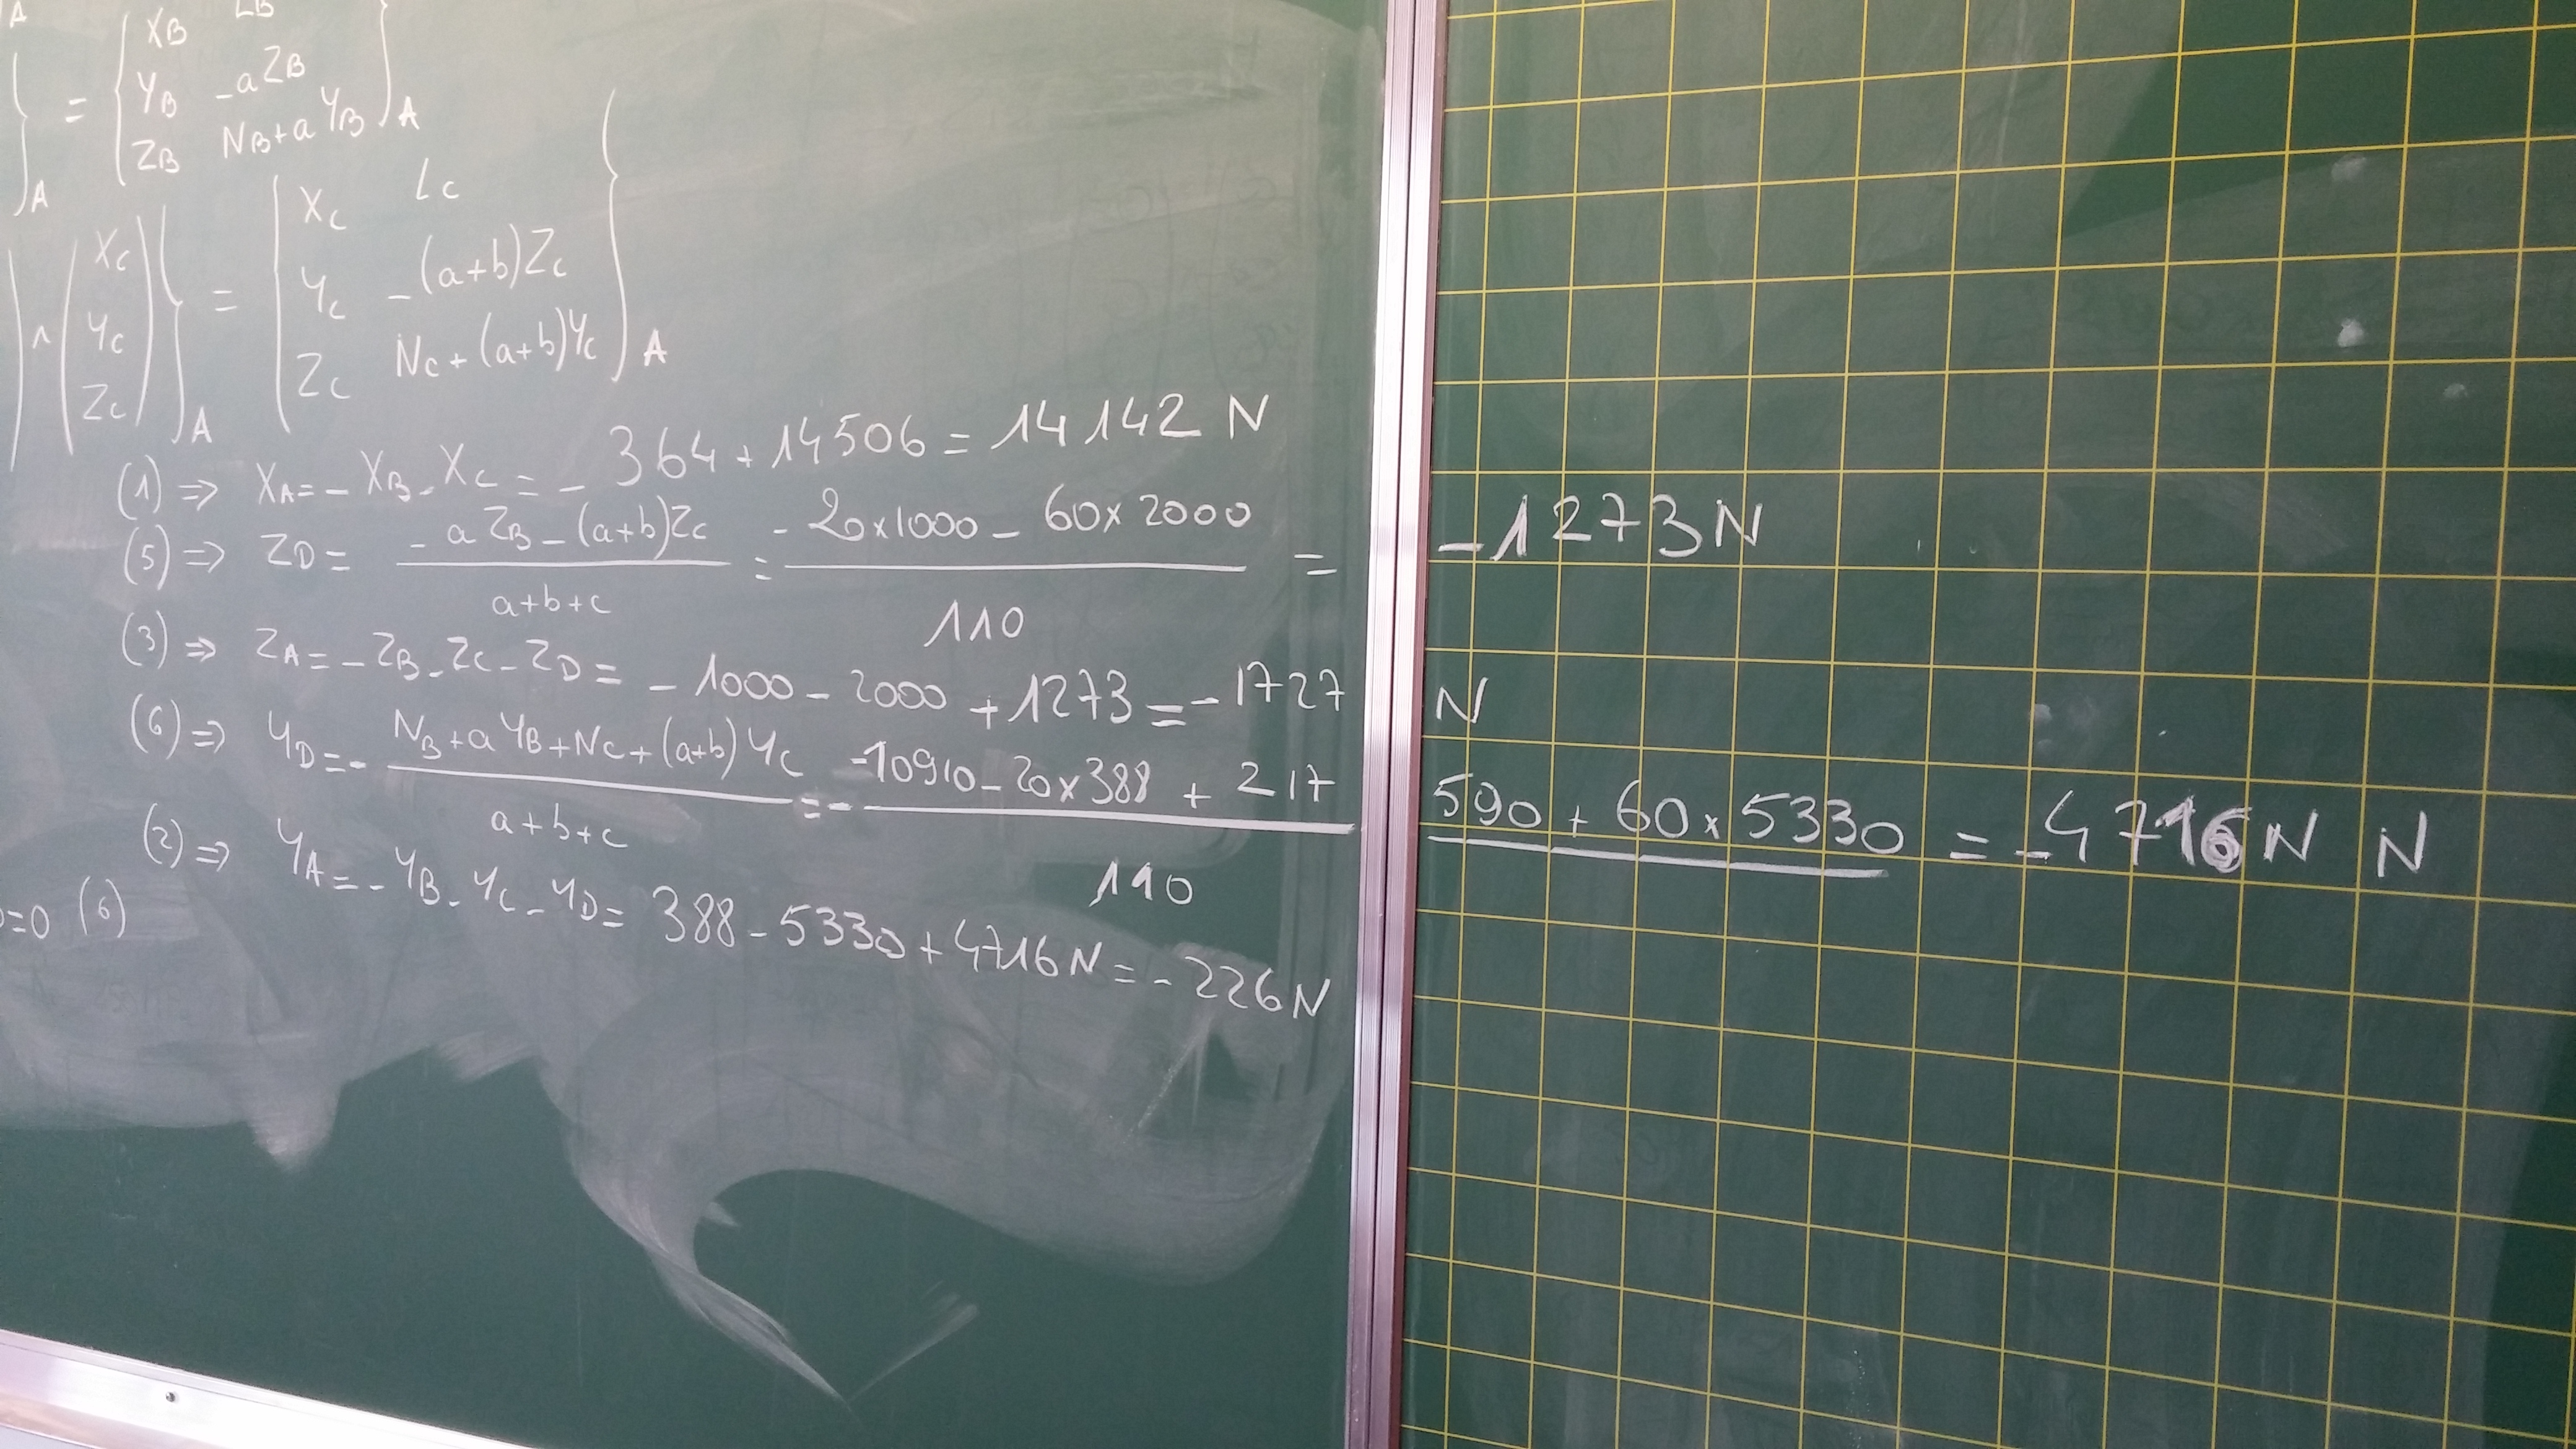 A
XB LB
= YB -aZB
ZB NB+aYB A
A
XC LC
∧ XC YC ZC A = YC -(a+b)ZC
ZC NC+(a+b)YC A
(1) => XA=-XB-XC=-364+14506=14142 N
(5) => ZD= -aZB-(a+b)ZC / a+b+c = -20x1000-60x2000 / 110 = -1273N
(3) => ZA=-ZB-ZC-ZD= -1000-2000+1273=-1727 N
(6) => YD=- NB+aYB+NC+(a+b)YC / a+b+c =- -10910-20x388+217590+60x5330 / 110 = -4716N N
(2) => YA=-YB-YC-YD= 388-5330+4716N=-226N
=0 (6)